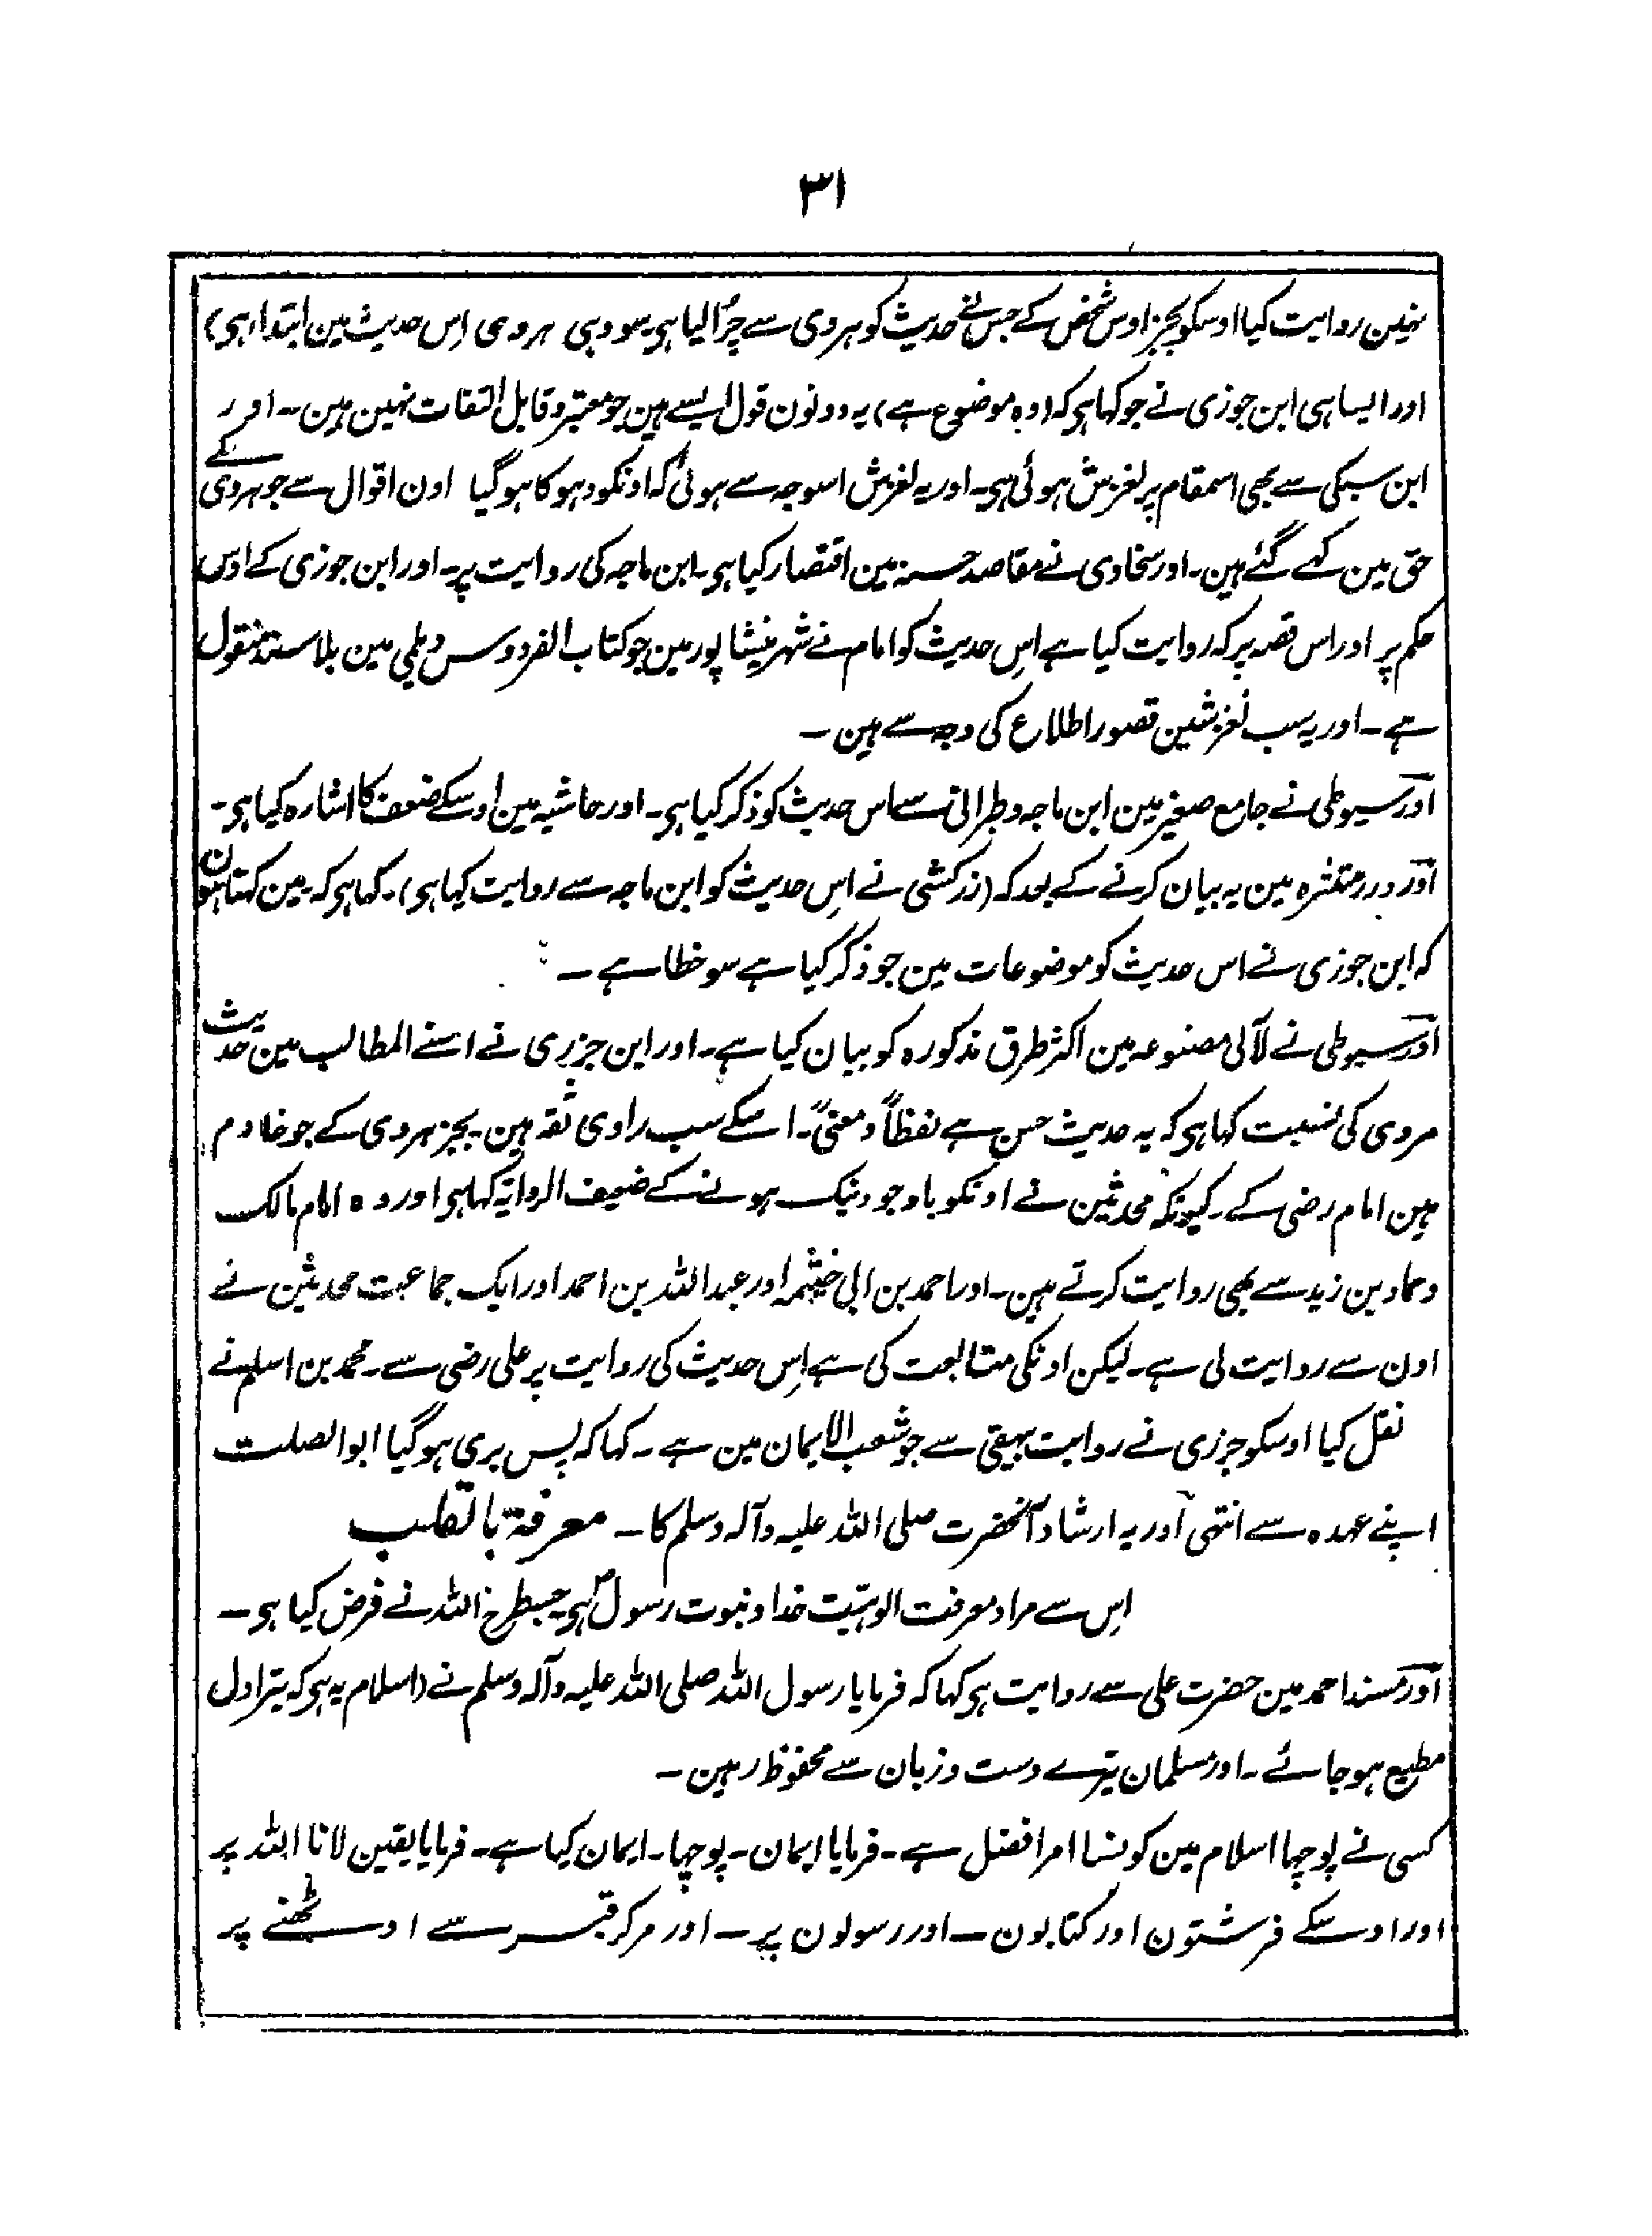 ۳۱
نہین روایت کیا اوسکو بجز اوس شخص کے جس نے حدیث کو ہروی سے چرُا لیا ہی سو وہی ہروی اِس حدیث مین ابتدا ہی)
اور ایسا ہی ابن جوزی نے جو کہا ہی کہ (وہ موضوع ہے) یہ دونون قول ایسے ہین جو معتبر و قابل التفات نہین ہین۔ اور
ابن سبکی سے بھی اسمقام پر لغزش ہوئی ہی۔ اور یہ لغزش اسوجہ سے ہوئی کہ اونکو دہوکا ہو گیا اون اقوال سے جو ہروی کے
حق مین کہے گئے ہین۔ اور سخاوی نے مقاصد حسنہ مین اقتصار کیا ہی۔ ابن ماجہ کی روایت پر۔ اور ابن جوزی کے اوس
حکم پر اور اس قصہ پر کہ روایت کیا ہے اس حدیث کو امام نے شہر نیشاپور مین جو کتاب الفردوس دیلمی مین بلا سند منقول
ہے۔ اور یہ سب لغزشین قصور اطلاع کی وجہ سے ہین۔
اور سیوطی نے جامع صغیر مین ابن ماجہ و طبرانی سے اس حدیث کو ذکر کیا ہی۔ اور حاشیہ مین اوسکے ضعف کا اشارہ کیا ہی۔
اور درر منتثرہ مین یہ بیان کرنے کے بعد کہ (زرکشی نے اس حدیث کو ابن ماجہ سے روایت کیا ہی)۔ کہا ہی کہ مین کہتا ہون
کہ ابن جوزی نے اس حدیث کو موضوعات مین جو ذکر کیا ہے سو خطا ہے۔
اور سیوطی نے لآلی مصنوعہ مین اکثر طرق مذکورہ کو بیان کیا ہے۔ اور ابن جزری نے اسنے المطالب مین حدیث
مروی کی نسبت کہا ہی کہ یہ حدیث حسن ہے لفظاً و معنیً۔ اسکے سب راوی ثقہ ہین بجز ہروی کے جو خادم
ہین امام رضی کے۔ کیونکہ محدثین نے اونکو باوجود نیک ہونے کے ضعیف الروایۃ کہا ہی اور وہ امام مالک
و حماد بن زید سے بھی روایت کرتے ہین۔ اور احمد بن ابی خیثمہ اور عبداللہ بن احمد اور ایک جماعت محدثین نے
اون سے روایت لی ہے۔ لیکن اونکی متابعت کی ہے اِس حدیث کی روایت پر علی رضی سے۔ محمد بن اسلم نے
نقل کیا اوسکو جزری نے روایت بیہقی سے جو شعب الایمان مین ہے۔ کہا کہ پس بری ہو گیا ابو الصلت
اپنے عہدہ سے انتہی اور یہ ارشاد آنحضرت صلی اللہ علیہ وآلہ وسلم کا۔ معرفۃ بالقلب
اِس سے مراد معرفت الوہیّت خدا و نبوت رسولؐ ہی۔ جسطرح اللہ نے فرض کیا ہی۔
اور مسند احمد مین حضرت علی سے روایت ہی کہا کہ فرمایا رسول اللہ صلی اللہ علیہ وآلہ وسلم نے (اسلام یہ ہی کہ تیرا دل
مطیع ہو جائے۔ اور مسلمان تیرے دست و زبان سے محفوظ رہین۔
کسی نے پوچہا اسلام مین کونسا امر افضل ہے۔ فرمایا ایمان۔ پوچہا۔ ایمان کیا ہے۔ فرمایا یقین لانا اللہ پر
اور اوسکے فرشتون اور کتابون۔ اور رسولون پر۔ اور مرکر قبر سے اوٹھنے پر